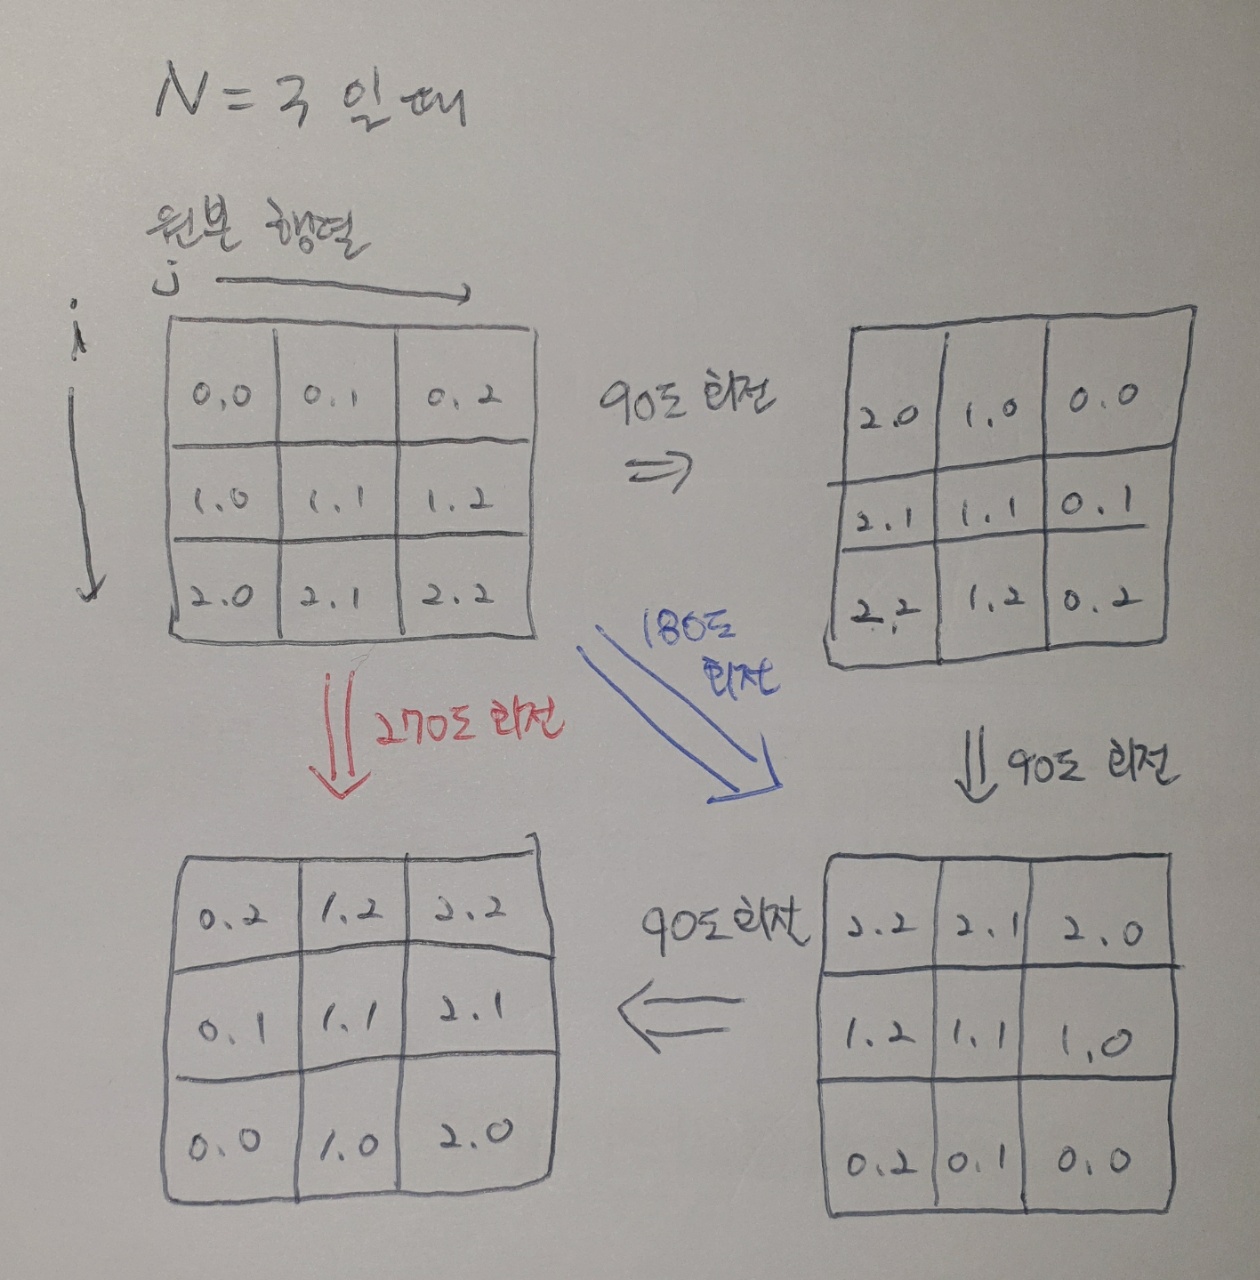 N=3 일 때
원본 행렬
j
i
0.0 0.1 0.2
1.0 1.1 1.2
2.0 2.1 2.2
90도 회전
2.0 1.0 0.0
2.1 1.1 0.1
2.2 1.2 0.2
270도 회전
180도
회전
90도 회전
0.2 1.2 2.2
0.1 1.1 2.1
0.0 1.0 2.0
90도 회전
2.2 2.1 2.0
1.2 1.1 1.0
0.2 0.1 0.0